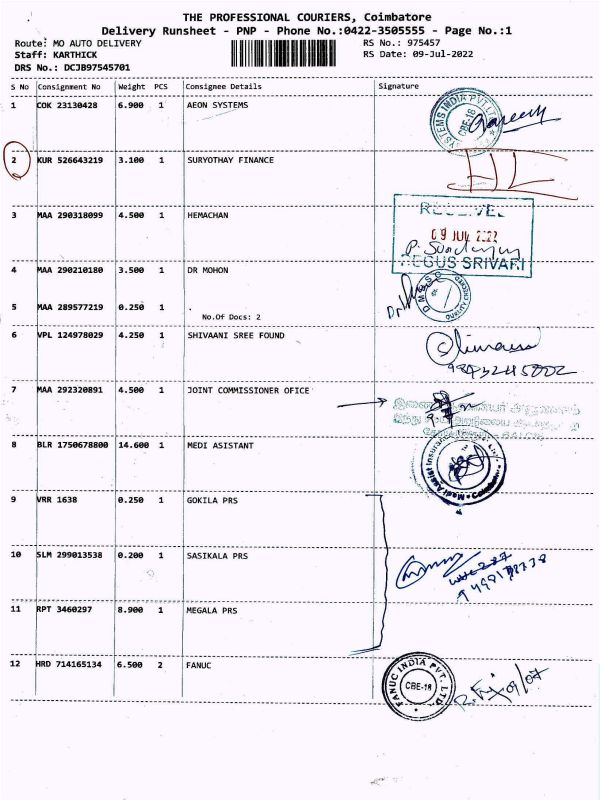 THE PROFESSIONAL COURIERS, Coimbatore
Delivery Runsheet - PNP - Phone No.:0422-3505555 - Page No.:1
Route: MO AUTO DELIVERY
RS No.: 975457
Staff: KARTHICK
RS Date: 09-Jul-2022
DRS No.: DCJB97545701
S No Consignment No Weight PCS Consignee Details Signature
1 COK 23130428 6.900 1 AEON SYSTEMS
SYSTEMS INDIA PVT.LTD
CBE-18
2 KUR 526643219 3.100 1 SURYOTHAY FINANCE
3 MAA 290318099 4.500 1 HEMACHAN
RECEIVED
09 JUL 2022
REGUS SRIVARI
4 MAA 290210180 3.500 1 DR MOHON
5 MAA 289577219 0.250 1 .
No.Of Docs: 2
6 VPL 124978029 4.250 1 SHIVAANI SREE FOUND
7 MAA 292320891 4.500 1 JOINT COMMISSIONER OFICE
8 BLR 1750678800 14.600 1 MEDI ASISTANT
9 VRR 1638 0.250 1 GOKILA PRS
10 SLM 299013538 0.200 1 SASIKALA PRS
11 RPT 3460297 8.900 1 MEGALA PRS
12 HRD 714165134 6.500 2 FANUC
FANUC INDIA PVT. LTD
CBE-18
09/07